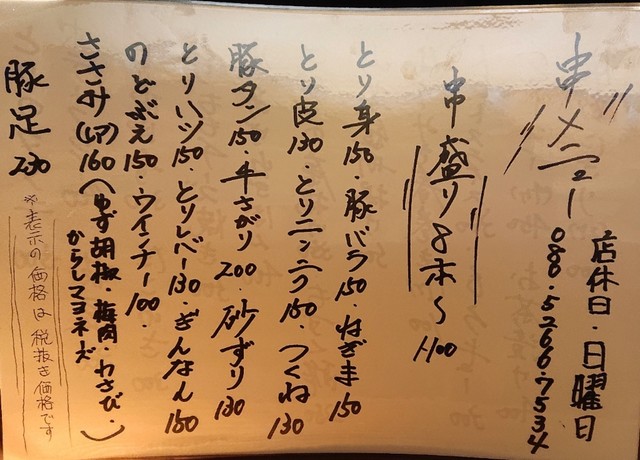 串メニュー
店休日・日曜日
080.5266.7534
串盛り8本〜1100
とり身150・豚バラ150・ねぎま150
とり皮130・とりニンニク150・つくね130
豚タン150・牛さがり200・砂ずり130
とりハツ150・とりレバー130・ぎんなん150
のどぶえ150・ウインナー100・
ささみ(1P)160(ゆず胡椒・梅肉・わさび・
からしマヨネーズ)
豚足230
※表示の価格は税抜き価格です